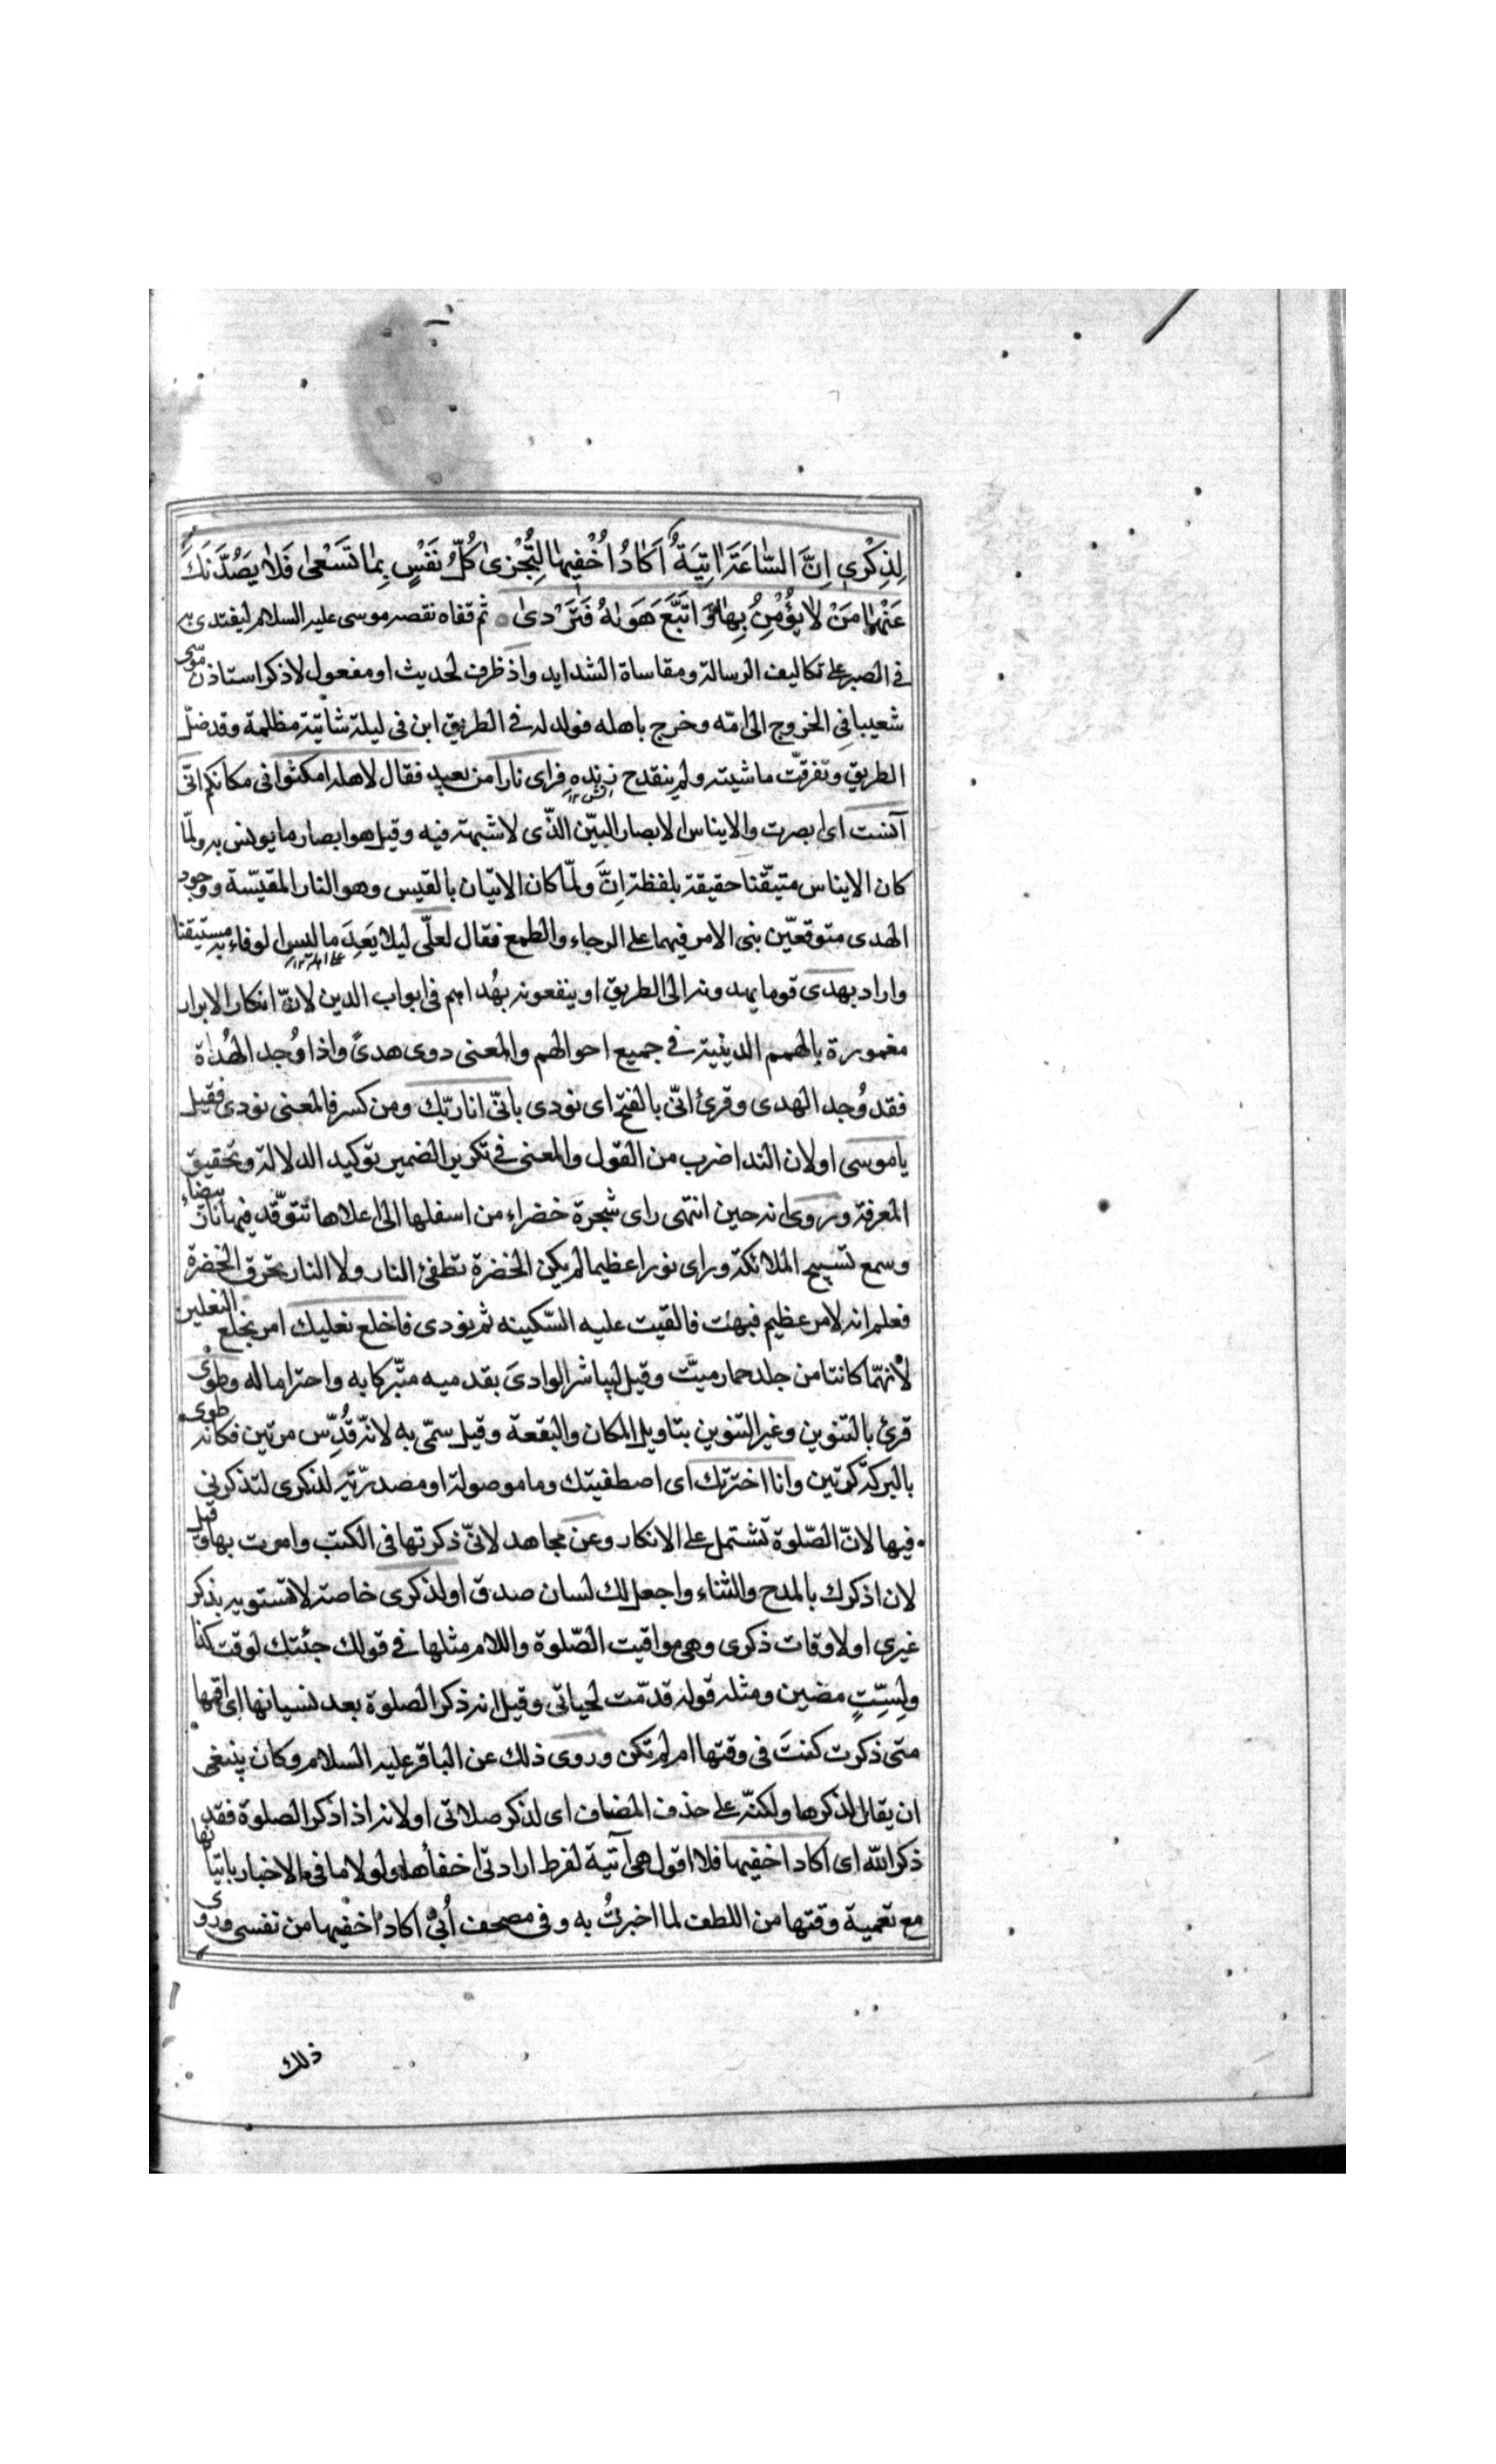 لِذِكْرِى اِنَّ السَّاعَةَ اتِيَةٌ اَكَادُ اُخْفِيهَا لِتُجْزٰى كُلُّ نَفْسٍ بِمَا تَسْعٰى فَلَا يَصُدَّنَّكَ
عَنْهَا مَنْ لَا يُؤْمِنُ بِهَا وَ اتَّبَعَ هَوٰىهُ فَتَرْدٰى ثم قفاه بقصه موسى عليه السلام ليقتدى به
فى الصبر على تكاليف الرسالة ومقاساة الشدايد واذ ظرف لحديث او مفعول لاذكر استاذن موسى
شعيبا فى الخروج الى امّه وخرج باهله فولد له فى الطريق ابن فى ليلة شاتية مظلمة وقد ضلّ
الطريق وتفرقت ماشيته ولم ينقدح زنده فراى نارا من بعيد فقال لاهله امكثوا فى مكانكم انّى
آنست اى ابصرت والايناس الابصار البيّن الذّى لا شبهة فيه وقيل هو ابصار ما يونس به ولمّا
كان الايناس متيقّنا حقيقة بلفظة اِنَّ ولمّا كان الاتيان بالقبس وهو النار المقبّسة ووجود
الهدى متوقعّين بنى الامر فيهما على الرجاء والطمع فقال لعلّى ليلا يَعِدَ ما ليس الوفاء به مستيقنا
واراد بهدى قوما يهدونه الى الطريق او ينفعونه بهُداهم فى ابواب الدين لانّ افكار الابرار
مغمورة بالهمم الدينية فى جميع احوالهم والمعنى ذوى هدىً واذا وُجد الهُداة
فقد وُجد الهدى وقرئ انّى بالفتح اى نودى بانّى انا ربّك ومن كسر فالمعنى نودى فقيل
ياموسى او لان الندا ضرب من القول والمعنى فى تكرير الضمير توكيد الدلالة وتحقيق
المعرفة وروى انه حين انتهى راى شجرة خضراء من اسفلها الى اعلاها تتوقّد فيها نار بيضاء
وسمع تسبيح الملائكة وراى نورا عظيما لم يكن الخضرة تطفئ النار ولا النار تحرق الخضرة
فعلم انه لامر عظيم فبهت فالقيت عليه السّكينه ثم نودى فاخلع نعليك امر بخلع النعلين
لأنهّما كانتا من جلد حمار ميّت وقيل ليباشر الوادى بقدميه متبّركا به واحتراما له وطوى
قرئ بالتنوين وغير التنوين بتاويل المكان والبقعة وقيل سمّى به لانّه قُدِّس مرتين فكانه طوى
بالبركة كرّتين وانا اخترتك اى اصطفيتك وما موصولة او مصدريّة لذكرى لتذكرنى
فيها لانّ الصّلوة تشتمل على الاذكار وعن مجاهد لانّى ذكرتها فى الكتب وامرت بها وقيل
لان اذكرك بالمدح والثناء واجعل لك لسان صدق او لذكرى خاصة لا تشوبه بذكر
غيرى او لاوقات ذكرى وهى مواقيت الصّلوة واللام مثلها فى قولك جئتك لوقت كذا
ولِسِتّ مضين ومثله قوله قدّمت لحياتى وقيل انه ذكر الصلوة بعد نسيانها اى اقمها
متى ذكرت كنتَ فى وقتها ام لم تكن وروى ذلك عن الباقر عليه السلام وكان ينبغى
ان يقال لذكرها ولكنّه على حذف المضاف اى لذكر صلاتى او لانه اذا ذكر الصلوة فقد
ذكر الله اى اكاد اخفيها فلا اقول هى آتية لفرط ارادتى اخفاءها ولولا ما فى الاخبار باتيانها
مع تعمية وقتها من اللطف لما اخبرتُ به وفى مصحف اُبىّ اكاد اخفيها من نفسى وروى
ذلك